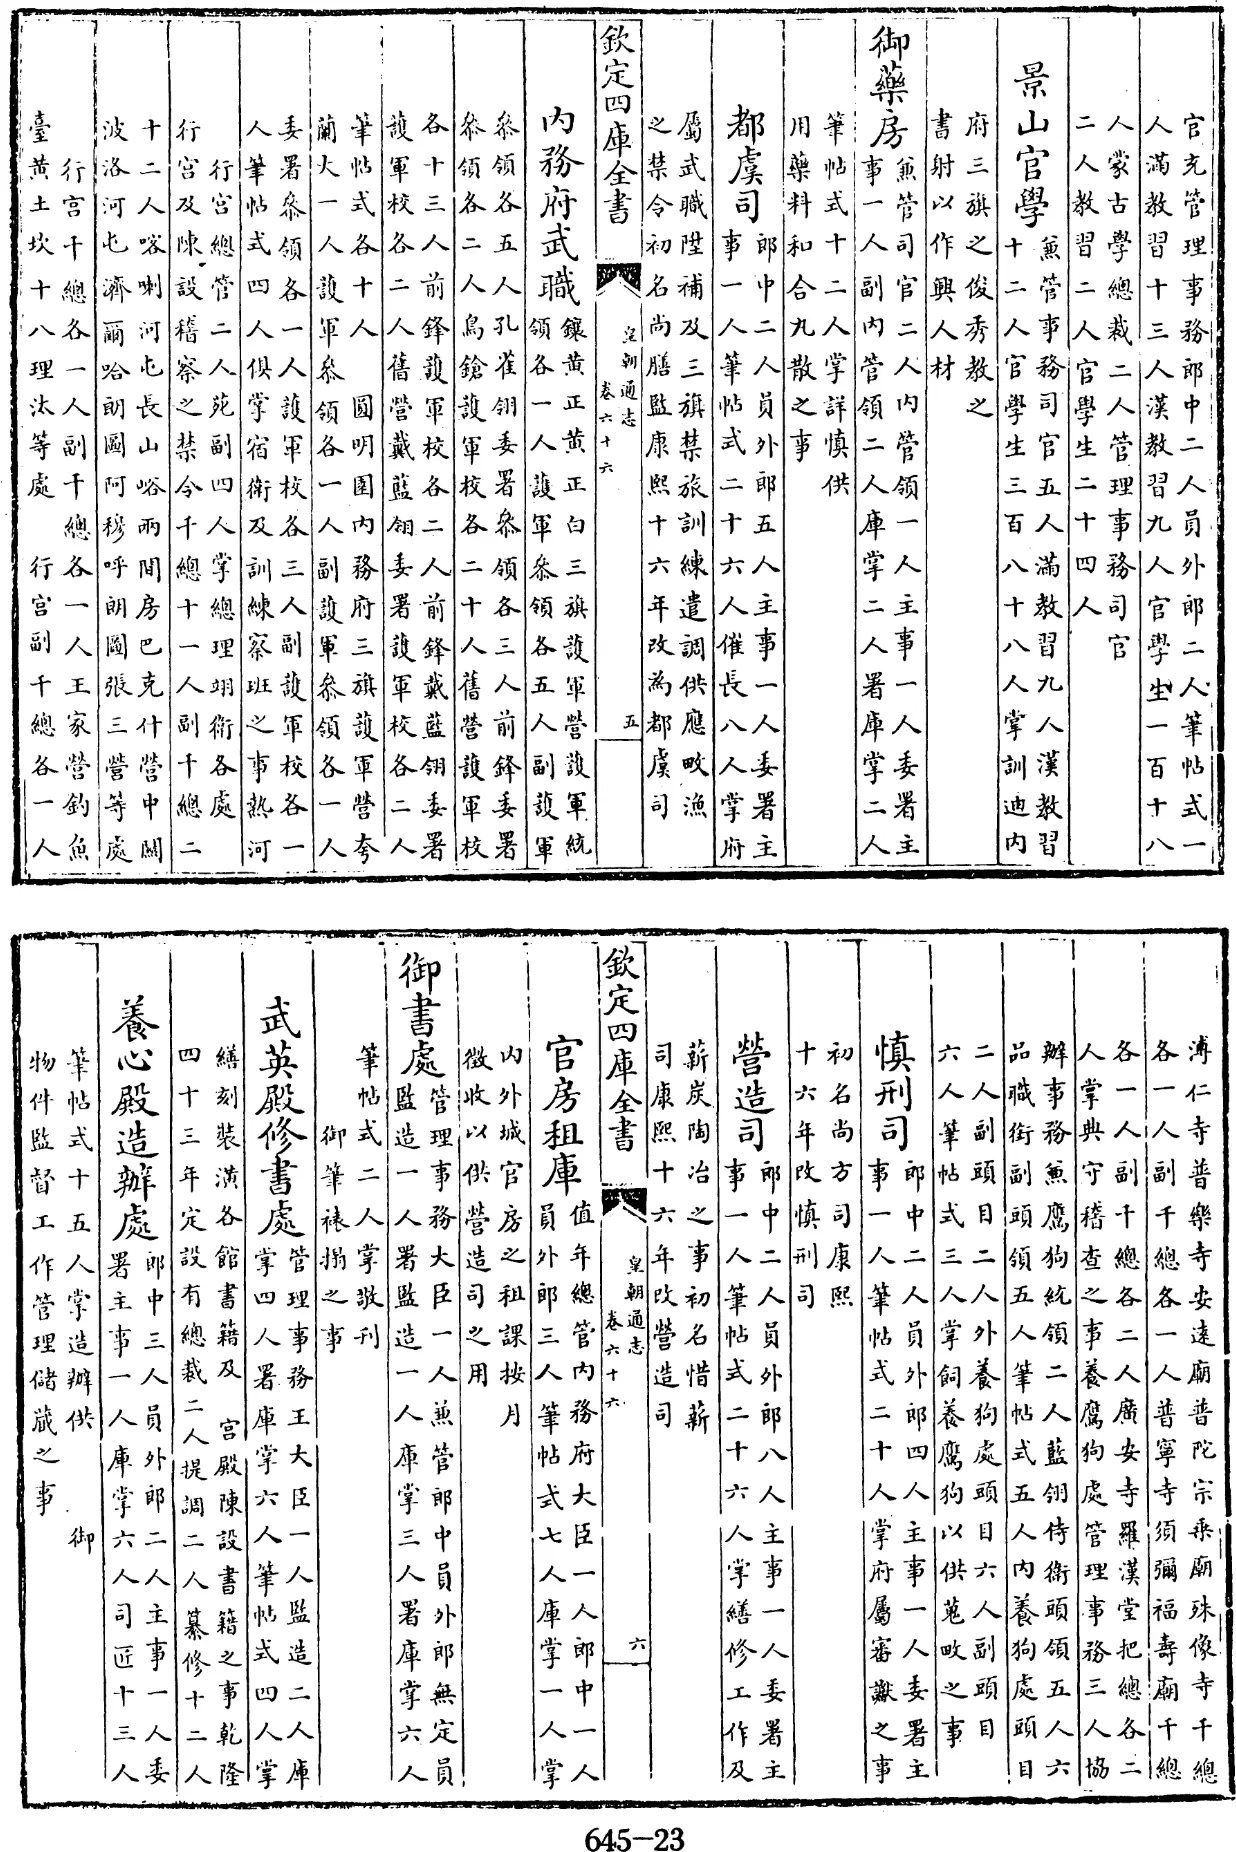 官充管理事務郎中二人員外郎二人筆帖式一
人滿教習十三人漢教習九人官學生一百十八
人蒙古學總裁二人管理事務司官
二人教習二人官學生二十四人
景山官學
兼管事務司官五人滿教習九人漢教習
十二人官學生三百八十八人掌訓迪内
府三旗之俊秀教之
書射以作興人材
御藥房
兼管司官二人内管領一人主事一人委署主
事一人副内管領二人庫掌二人署庫掌二人
筆帖式十二人掌詳慎供
用藥料和合丸散之事
都虞司
郎中二人員外郎五人主事一人委署主
事一人筆帖式二十六人催長八人掌府
屬武職陞補及三旗禁旅訓練遣調供應畋漁
之禁令初名尚膳監康熙十六年改為都虞司
欽定四庫全書
皇朝通志
卷六十六
五
内務府武職
鑲黄正黄正白三旗護軍營護軍統
領各一人護軍叅領各五人副護軍
叅領各五人孔雀翎委署叅領各三人前鋒委署
叅領各二人鳥鎗護軍校各二十人舊營護軍校
各十三人前鋒護軍校各二人前鋒戴藍翎委署
護軍校各二人舊營戴藍翎委署護軍校各二人
筆帖式各十人 圓明園内務府三旗護軍營夸
蘭大一人護軍叅領各一人副護軍叅領各一人
委署叅領各一人護軍校各三人副護軍校各一
人筆帖式四人俱掌宿衛及訓練察班之事熱河
行宫總管二人苑副四人掌總理翊衛各處
行宫及陳設稽察之禁令千總十一人副千總二
十二人喀喇河屯長山峪兩間房巴克什營中關
波洛河屯濟爾哈朗圖阿穆呼朗圖張三營等處
行宫千總各一人副千總各一人王家營釣魚
臺黄土坎十八理汰等處 行宫副千總各一人
溥仁寺普樂寺安逺廟普陀宗乘廟殊像寺千總
各一人副千總各一人普寧寺須彌福壽廟千總
各一人副千總各二人廣安寺羅漢堂把總各二
人掌典守稽查之事養鷹狗處管理事務三人協
辦事務兼鷹狗統領二人藍翎侍衛頭領五人六
品職銜副頭領五人筆帖式五人内養狗處頭目
二人副頭目二人外養狗處頭目六人副頭目
六人筆帖式三人掌飼養鷹狗以供蒐畋之事
慎刑司
郎中二人員外郎四人主事一人委署主
事一人筆帖式二十人掌府屬審讞之事
初名尚方司康熙
十六年改慎刑司
營造司
郎中二人員外郎八人主事一人委署主
事一人筆帖式二十六人掌繕修工作及
薪炭陶冶之事初名惜薪
司康熙十六年改營造司
欽定四庫全書
皇朝通志
卷六十六
六
官房租庫
值年總管内務府大臣一人郎中一人
員外郎三人筆帖式七人庫掌一人掌
内外城官房之租課按月
徵收以供營造司之用
御書處
管理事務大臣一人兼管郎中員外郎無定員
監造一人署監造一人庫掌三人署庫掌六人
筆帖式二人掌敬刊
御筆裱搨之事
武英殿修書處
管理事務王大臣一人監造二人庫
掌四人署庫掌六人筆帖式四人掌
繕刻裝潢各館書籍及 宫殿陳設書籍之事乾隆
四十三年定設有總裁二人提調二人纂修十二人
養心殿造辦處
郎中三人員外郎二人主事一人委
署主事一人庫掌六人司匠十三人
筆帖式十五人掌造辦供 御
物件監督工作管理儲蔵之事
645-23